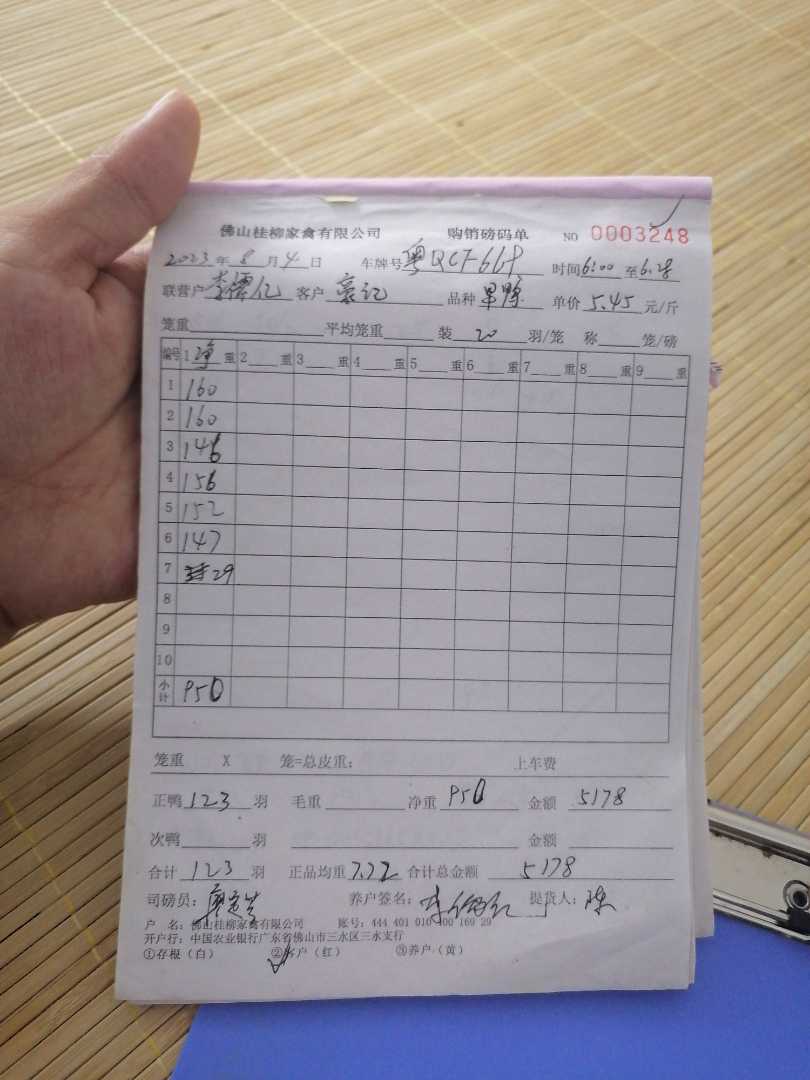 佛山桂柳家禽有限公司 购销磅码单 NO 0003248
2023年8月4日 车牌号粤QCF668 时间6:00至6:28
联营户李 客户豪记 品种旱鸭 单价5.45元/斤
笼重 平均笼重 装20羽/笼 称 笼/磅
编号 1净重 2重 3重 4重 5重 6重 7重 8重 9重
1 160
2 160
3 146
4 156
5 152
6 147
7 29
8
9
10
小计 950
笼重 X 笼=总皮重: 上车费
正鸭123羽 毛重 净重950 金额5178
次鸭 羽 金额
合计123羽 正品均重7.72 合计总金额5178
司磅员: 养户签名: 提货人:陈
户 名: 佛山桂柳家禽有限公司 账号: 444 401 010 400 169 29
开户行: 中国农业银行广东省佛山市三水区三水支行
①存根(白) ②客户(红) ③养户(黄)